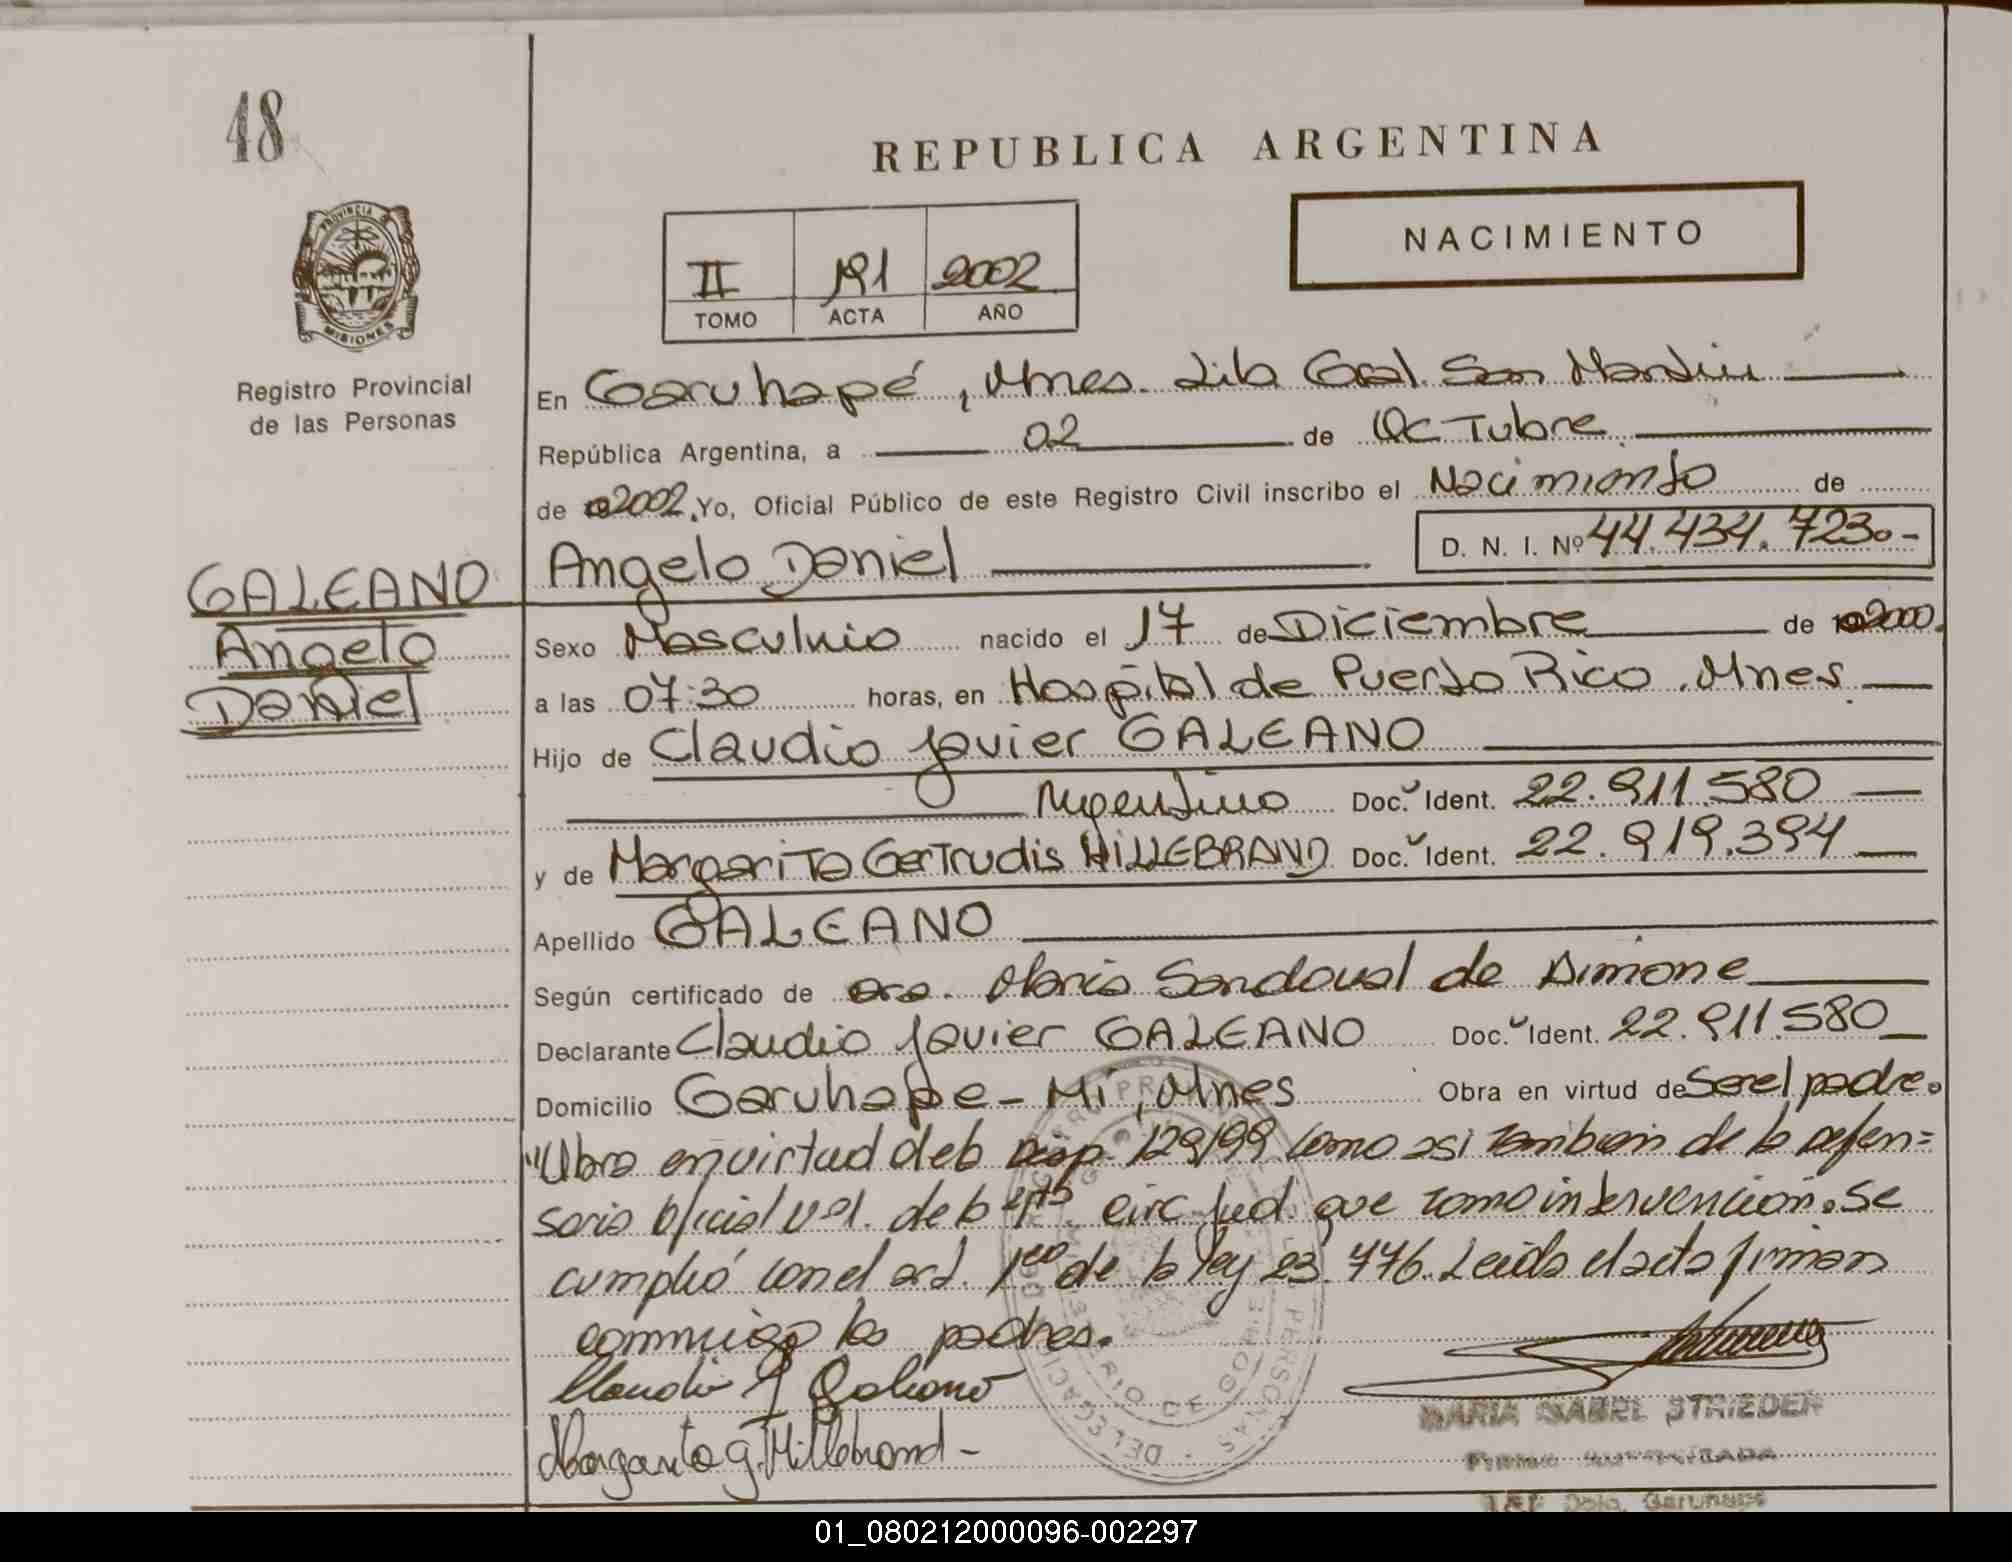 48
REPUBLICA ARGENTINA
NACIMIENTO
II 191 2002
TOMO ACTA AÑO
PROVINCIA DE MISIONES
Registro Provincial
de las Personas
En Garuhapé, Mnes. Lib Gral. San Martín
República Argentina, a 02 de Octubre
de 2002. Yo, Oficial Público de este Registro Civil inscribo el Nacimiento de
D. N. I. Nº 44.434.723.-
Angelo Daniel
GALEANO
Angelo
Daniel
Sexo Masculino nacido el 17 de Diciembre de 2000.
a las 07:30 horas, en Hospital de Puerto Rico. Mnes.
Hijo de Claudio Javier GALEANO
Argentino Doc. Ident. 22.911.580
y de Margarita Gertrudis HILLEBRAND Doc. Ident. 22.919.394
Apellido GALEANO
Según certificado de María Sandoval de Dimone
Declarante Claudio Javier GALEANO Doc. Ident. 22.911.580
Domicilio Garuhape - Mí, Mnes Obra en virtud de Ser el padre.
"Obra en virtud de la Disp. 129/99 como asi tambien de la Defen=
soria Oficial de la 4ta circ. Jud. que tomo intervención. Se
cumplió con el art. 1ro de la ley 23.776. Leida el acta firman
conmigo los padres.
Claudio J Galeano
Margarita G. Hillebrand -
MARIA ISABEL STRIEDER
FIRMA AUTORIZADA
Garuhape
01_080212000096-002297